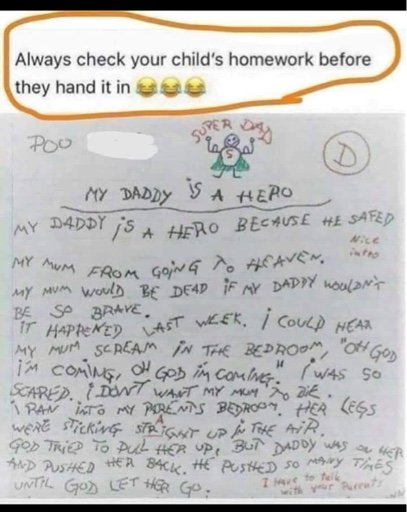 Always check your child's homework before
they hand it in 😂😂😂
SUPER DAD
POU
S
D
MY DADDY IS A HERO
MY DADDY IS A HERO BECAUSE HE SAFED
Nice
intro
MY MUM FROM GOING TO HEAVEN.
MY MUM WOULD BE DEAD IF MY DADDY WOULDN'T
BE SO BRAVE.
IT HAPPENED LAST WEEK. I COULD HEAR
MY MUM SCREAM IN THE BEDROOM, "OH GOD
I'M COMING, OH GOD I'M COMING." I WAS SO
SCARED. I DON'T WANT MY MUM TO DIE.
I RAN INTO MY PARENTS BEDROOM. HER LEGS
WERE STICKING STRAIGHT UP IN THE AIR.
GOD TRIED TO PULL HER UP, BUT DADDY WAS ON HER
AND PUSHED HER BACK. HE PUSHED SO MANY TIMES
UNTIL GOD LET HER GO.
I Have to talk
with your Parents